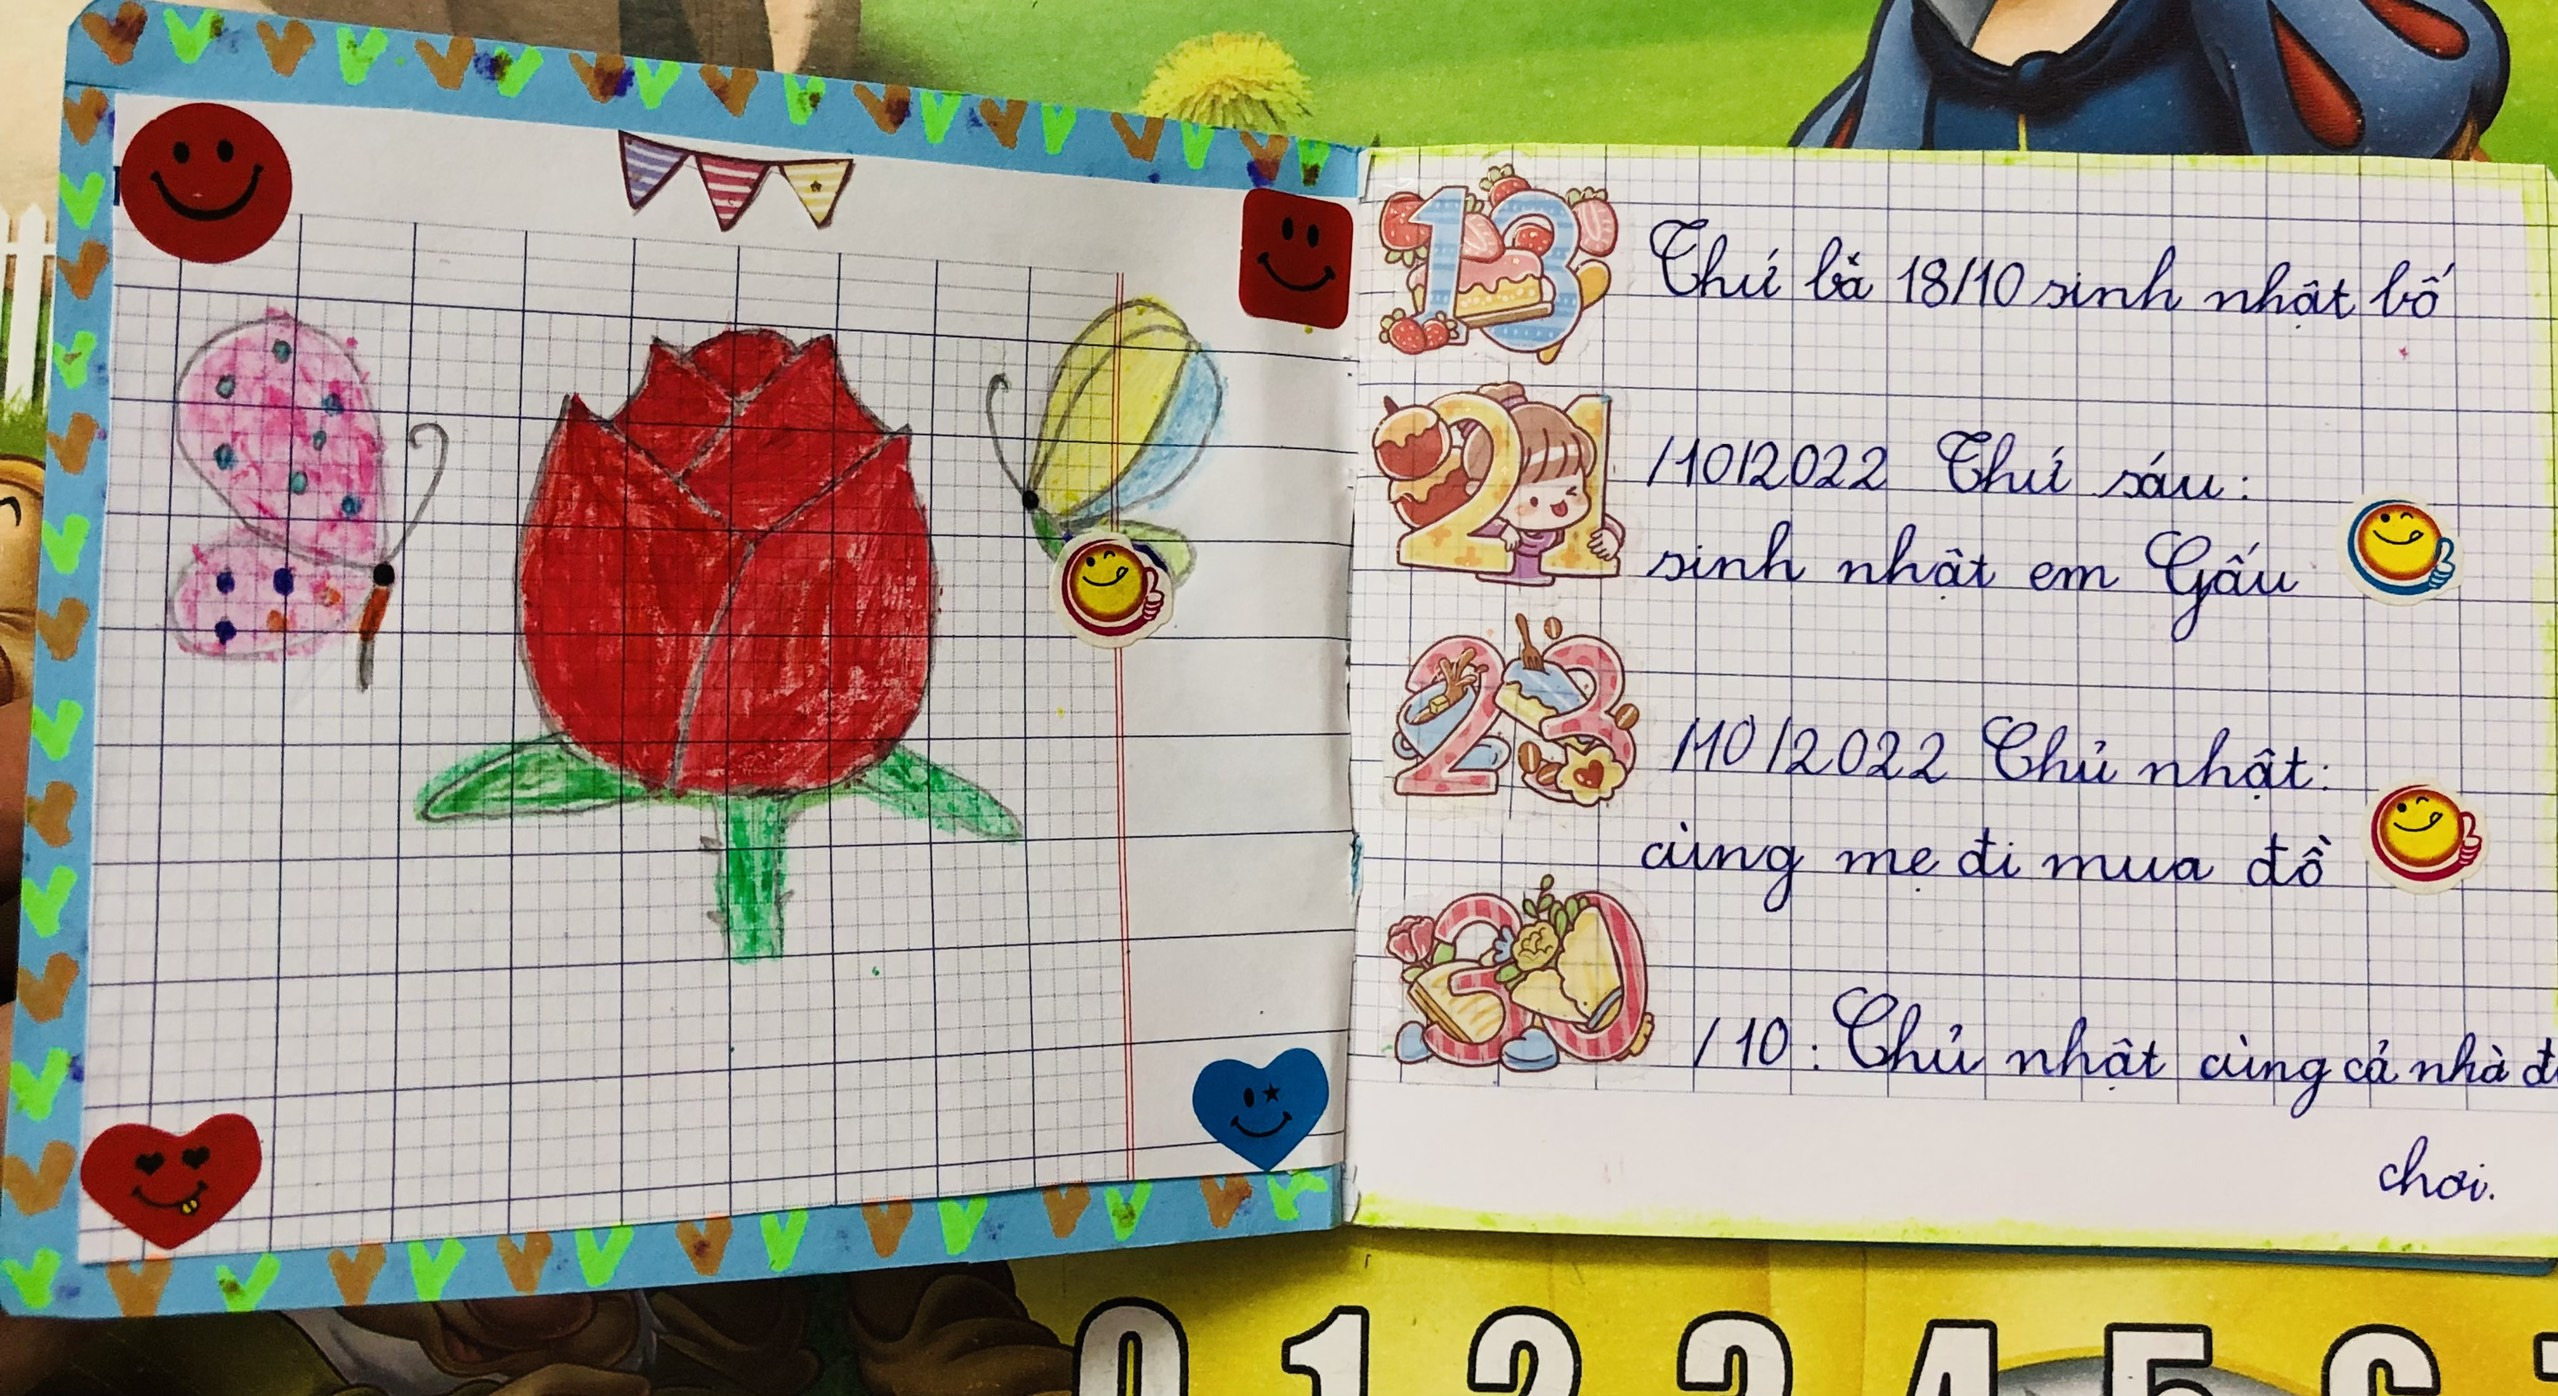 13 Thứ ba 18/10 sinh nhật bố
21 /10/2022 Thứ sáu:
sinh nhật em Gấu
23 /10/2022 Chủ nhật:
cùng mẹ đi mua đồ
30 /10: Chủ nhật cùng cả nhà đi
chơi.
0 1 2 3 4 5 6